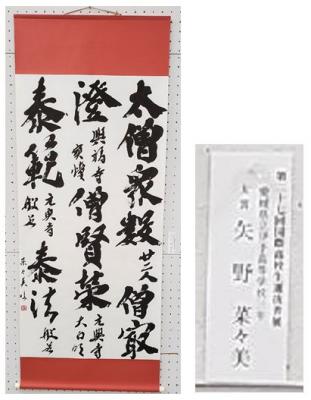 太僧衆数 廿二人 僧最
澄 興福寺 寶幢 僧賢榮 元興寺 大日
泰範 元興寺 般若 泰法 般若
菜々美臨
第二十七回国際高校生選抜書展
愛媛県立 高等学校 年
大賞 矢野菜々美